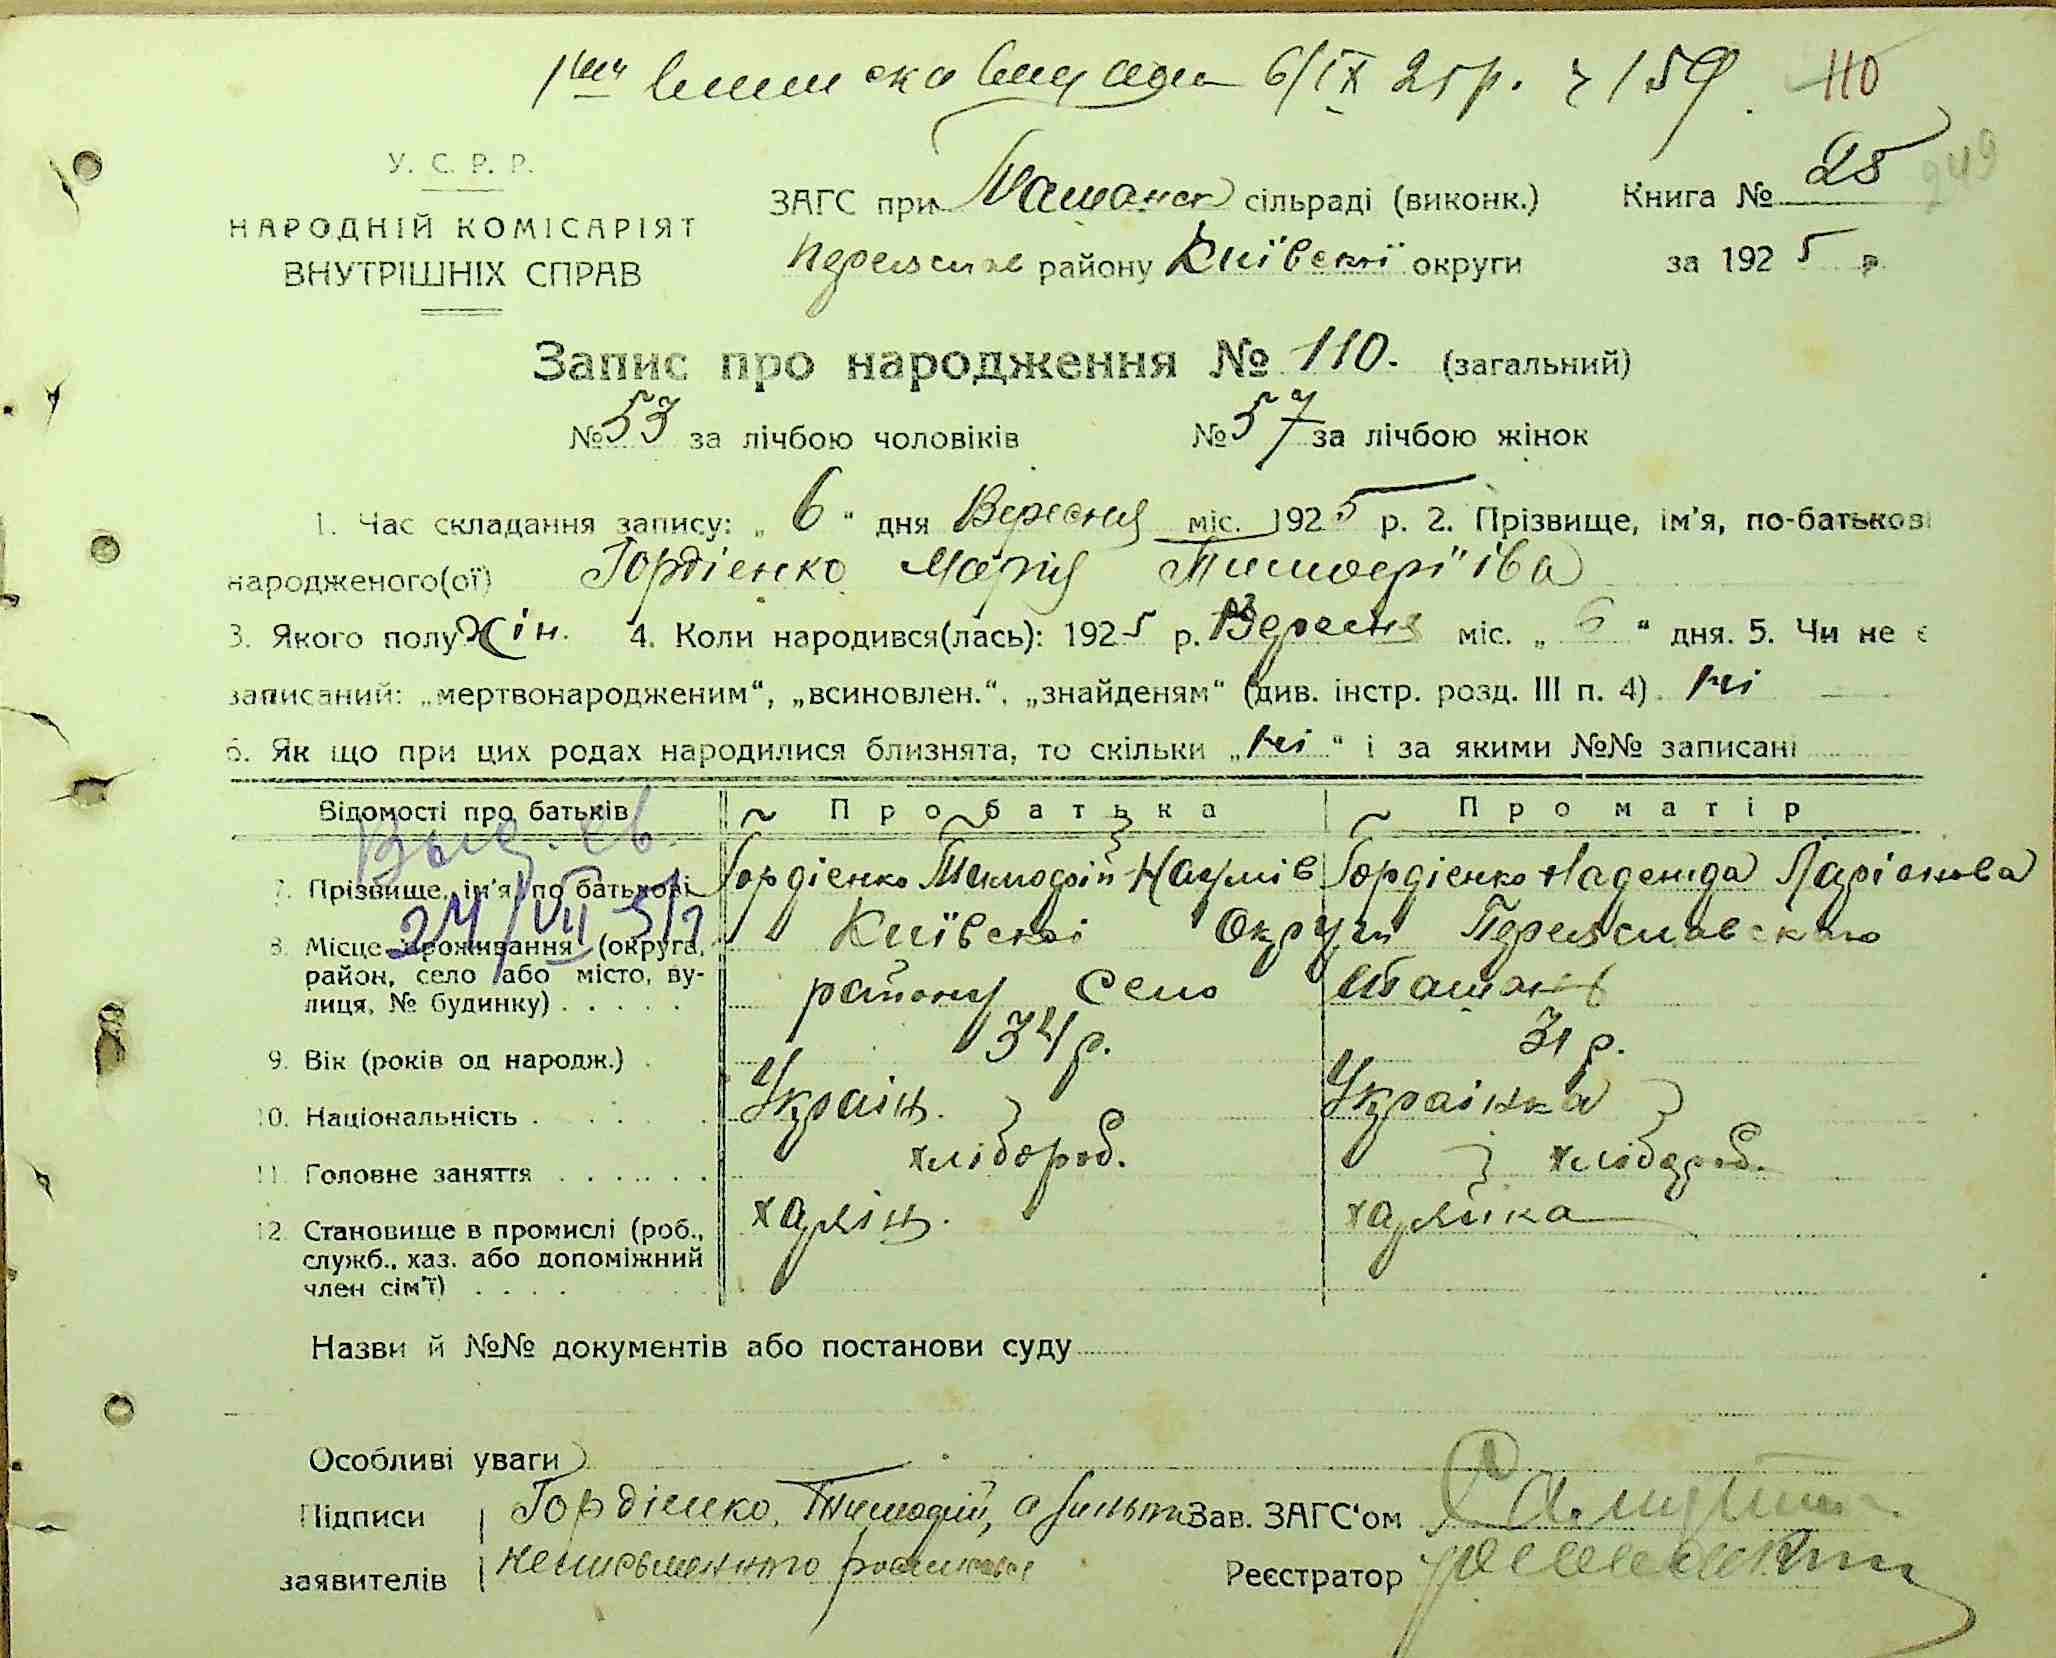 виписка видана 6/IX 25 р. ч 159 110
У. С. Р. Р. 249
НАРОДНІЙ КОМІСАРІЯТ
ВНУТРІШНІХ СПРАВ
ЗАГС при Ташанск сільраді (виконк.) Книга № 25
району Київскої округи за 1925 р.
Запис про народження № 110. (загальний)
№ 53 за лічбою чоловіків № 57 за лічбою жінок
1. Час складання запису: „ 6 “ дня Вересня міс. 1925 р. 2. Прізвище, ім'я, по-батькові
народженого(ої) Гордіенко Марія
3. Якого полу жін. 4. Коли народився(лась): 1925 р. Вересня міс. „ 6 “ дня. 5. Чи не є
записаний: „мертвонародженим“, „всиновлен.“, „знайденям“ (див. інстр. розд. III п. 4). ні
6. Як що при цих родах народилися близнята, то скільки „ ні “ і за якими №№ записані
Відомості про батьків Про батька Про матір
Выд. св.
7. Прізвище, ім'я, по батькові Гордіенко Тимофій Наумів Гордіенко Надежда Ларіонова
24/VII
8. Місце проживання (округа, Київскої Округи Переяславского
район, село або місто, ву- району село Ташань
лиця, № будинку) . . . . .
9. Вік (років од народж.) . 34 р. 31 р.
10. Національність . . . . . Украін. Украінка
11. Головне заняття . . . . . . хлібороб. хлібороб.
12. Становище в промислі (роб., хазяін. хазяйка
служб., хаз. або допоміжний
член сім'ї) . . . .
Назви й №№ документів або постанови суду
Особливі уваги
Підписи Гордіенко, Тимофій, а Зав. ЗАГС'ом
заявителів неписьменного Реєстратор